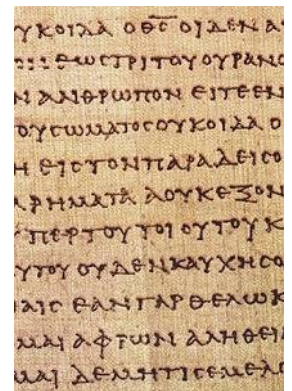 ΥΚΟΙΔΑ Ο Θ̅Ϲ̅ ΟΙΔΕΝ Α
ΕΩϹΤΡΙΤΟΥΟΥΡΑΝΟ
Ν ΑΝΘΡΩΠΟΝ ΕΙΤΕΕΝ
ΟΥϹΩΜΑΤΟϹΟΥΚΟΙΔΑ Ο
Η ΕΙϹΤΟΝΠΑΡΑΔΕΙϹΟ
ΑΡΗΜΑΤΑ ΑΟΥΚΕΞΟΝ
ΥΠΕΡΤΟΥ ΤΟΙΟΥΤΟΥ Κ
ΥΤΟΥ ΟΥΔΕΝΚΑΥΧΗϹΟ
ΑΙϹ ΕΑΝΓΑΡΘΕΛΩΚ
ΜΑΙ ΑΦΡΩΝ ΑΛΗΘΕΙ
ΜΑΙ ΔΕΜΗΤΙϹΕΜΕΛΟ